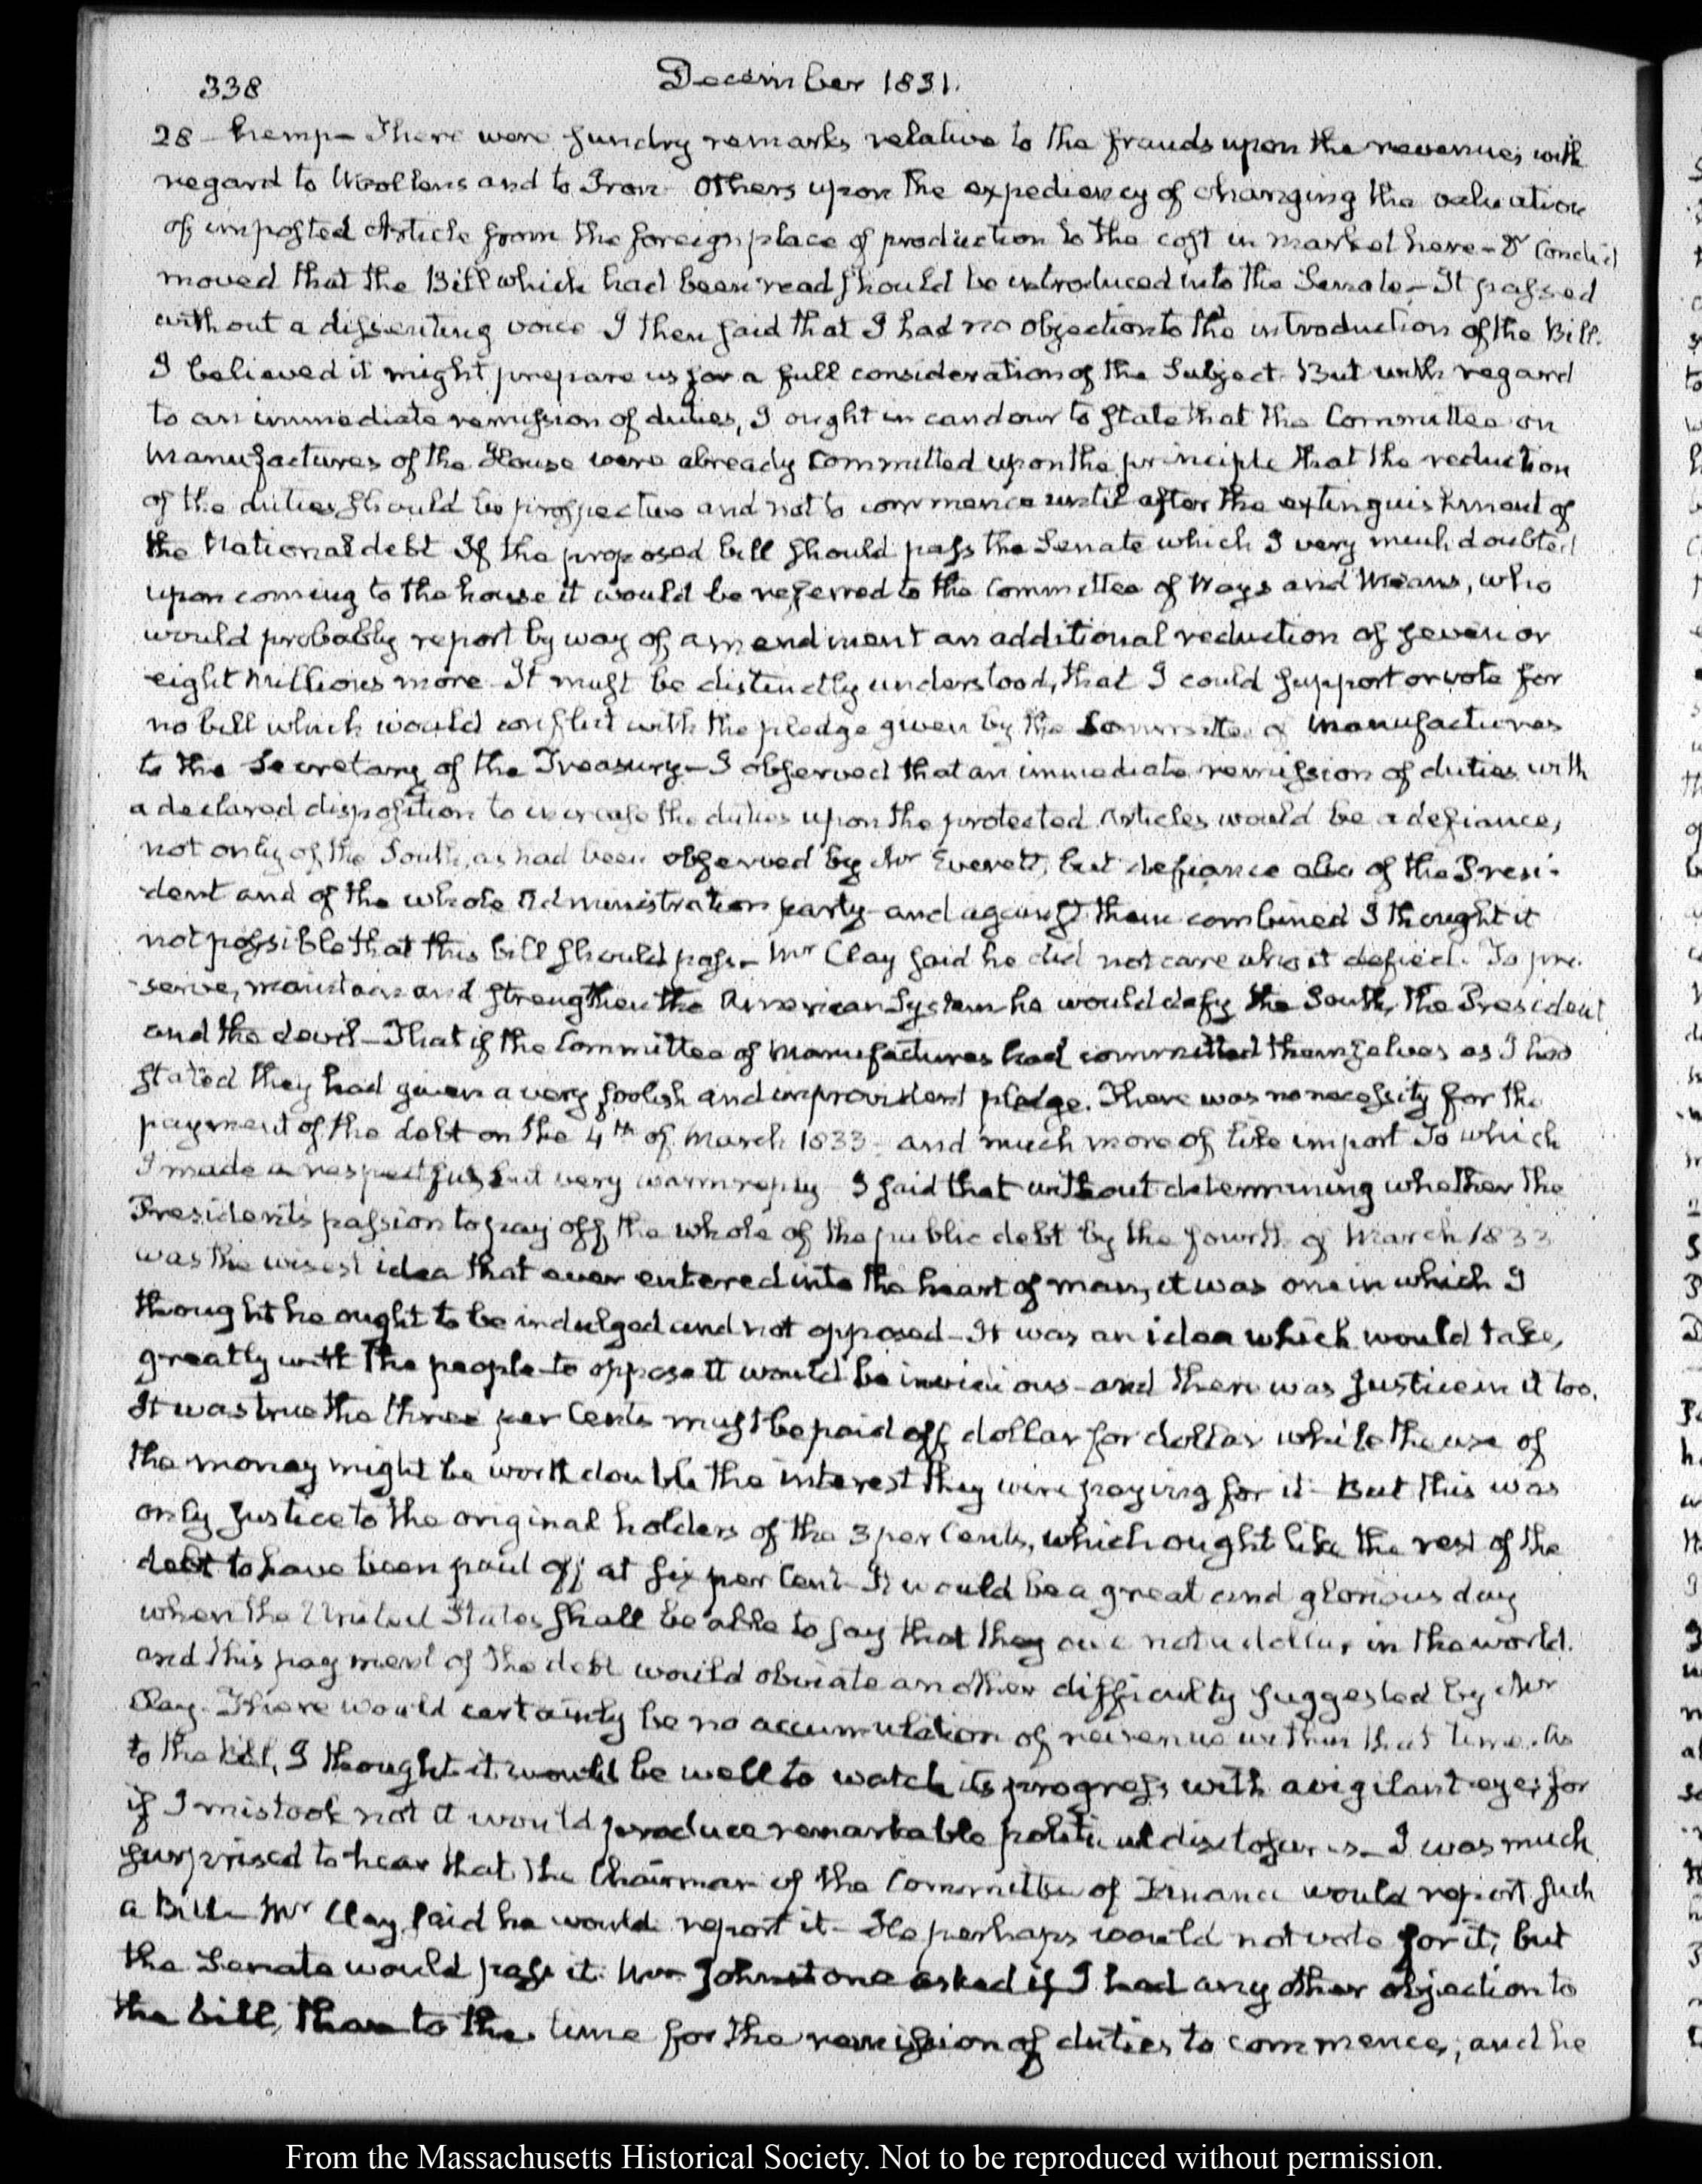 338
December 1831.
28 hemp– There were sundry remarks relative to the frauds upon the revenues with
regard to Woollens and to Iron– Others upon the expediency of changing the valuation
of imported Article from the foreign place of production to the cost in market here– Dr Condict
moved that the Bill which had been read should be introduced into the Senate,– It passed
without a dissenting voice I then said that I had no objection to the introduction of the Bill.
I believed it might prepare us for a full consideration of the Subject. But with regard
to an immediate remission of duties, I ought in candour to state that the Committee on
Manufactures of the House were already committed upon the principle that the reduction
of the duties should be prospective and not to commence until after the extinguishment of
the National debt If the proposed bill should pass the Senate which I very much doubted
upon coming to the house it would be referred to the Committee of Ways and Means, who
would probably report by way of amendment an additional reduction of seven or
eight Millions more– It must be distinctly understood, that I could support or vote for
no bill which would conflict with the pledge given by the Committee of Manufactures
to the Secretary of the Treasury– I observed that an immediate remission of duties with
a declared disposition to increase the duties upon the protected Articles would be a defiance,
not only of the South, as had been observed by Mr Everett, but defiance also of the Presi-
dent and of the whole Administration party– and against them combined I thought it
not possible that this bill should pass.– Mr Clay said he did not care who it defied. To pre-
serve, maintain and strengthen the American System he would defy the South, the President
and the devil– That if the Committee of Manufactures had committed themselves as I had
stated they had given a very foolish and improvident pledge. There was no necessity for the
payment of the debt on the 4th of March 1833– and much more of like import To which
I made a respectful but very warm reply– I said that without determining whether the
President's passion to pay off the whole of the public debt by the fourth of March 1833
was the wisest idea that ever entered into the heart of man, it was one in which I
thought he ought to be indulged and not opposed– It was an idea which would take,
greatly with the people– to oppose it would be invidious– and there was justice in it too.
It was true the three per Cents must be paid off dollar for dollar while the use of
the money might be worth double the interest they were paying for it– But this was
only justice to the original holders of the 3 per Cents, which ought like the rest of the
debt to have been paid off at six per Cent– It would be a great and glorious day
when the United States shall be able to say that they owe not a dollar in the world.
and this payment of the debt would obviate another difficulty suggested by Mr
Clay. There would certainly be no accumulation of revenue within that time. As
to the bill, I thought it would be well to watch its progress with a vigilant eye; for
if I mistook not it would produce remarkable political disclosures– I was much
surprised to hear that the Chairman of the Committee of Finance would report such
a Bill– Mr Clay said he would report it– He perhaps would not vote for it; but
the Senate would pass it. Mr Johnstone asked if I had any other objection to
the bill, than to the time for the remission of duties to commence; and he
From the Massachusetts Historical Society. Not to be reproduced without permission.